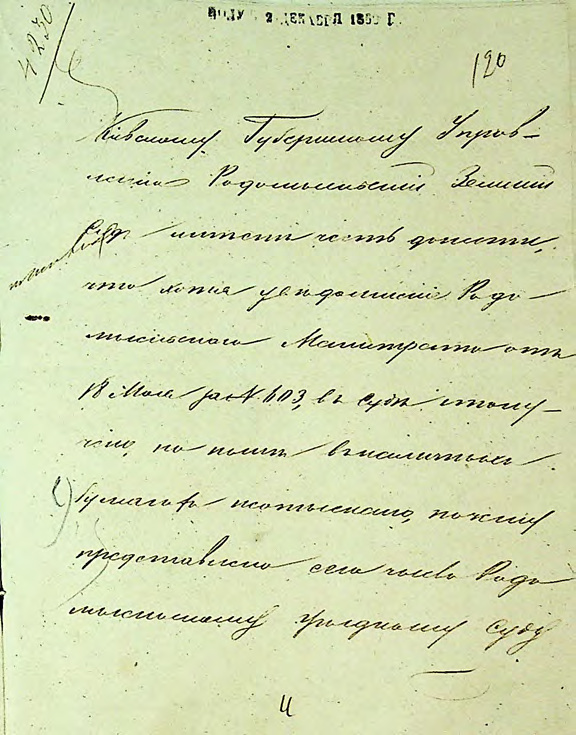 4230
2 ДЕКАБРЯ 185 Г.
120
Кіевскому Губернскому Управ-
ленію Радомысльскій Земскій
Судъ имѣетъ честь донести,
что хотя увѣдомленіе Радо-
мысльскаго Магистрата отъ
18 Мая за № 603, въ Судѣ
но нынѣ въ наличныхъ
бумагахъ неотыскано, почему
представлено сего числа Радо
мысльскому Уѣздному Суду